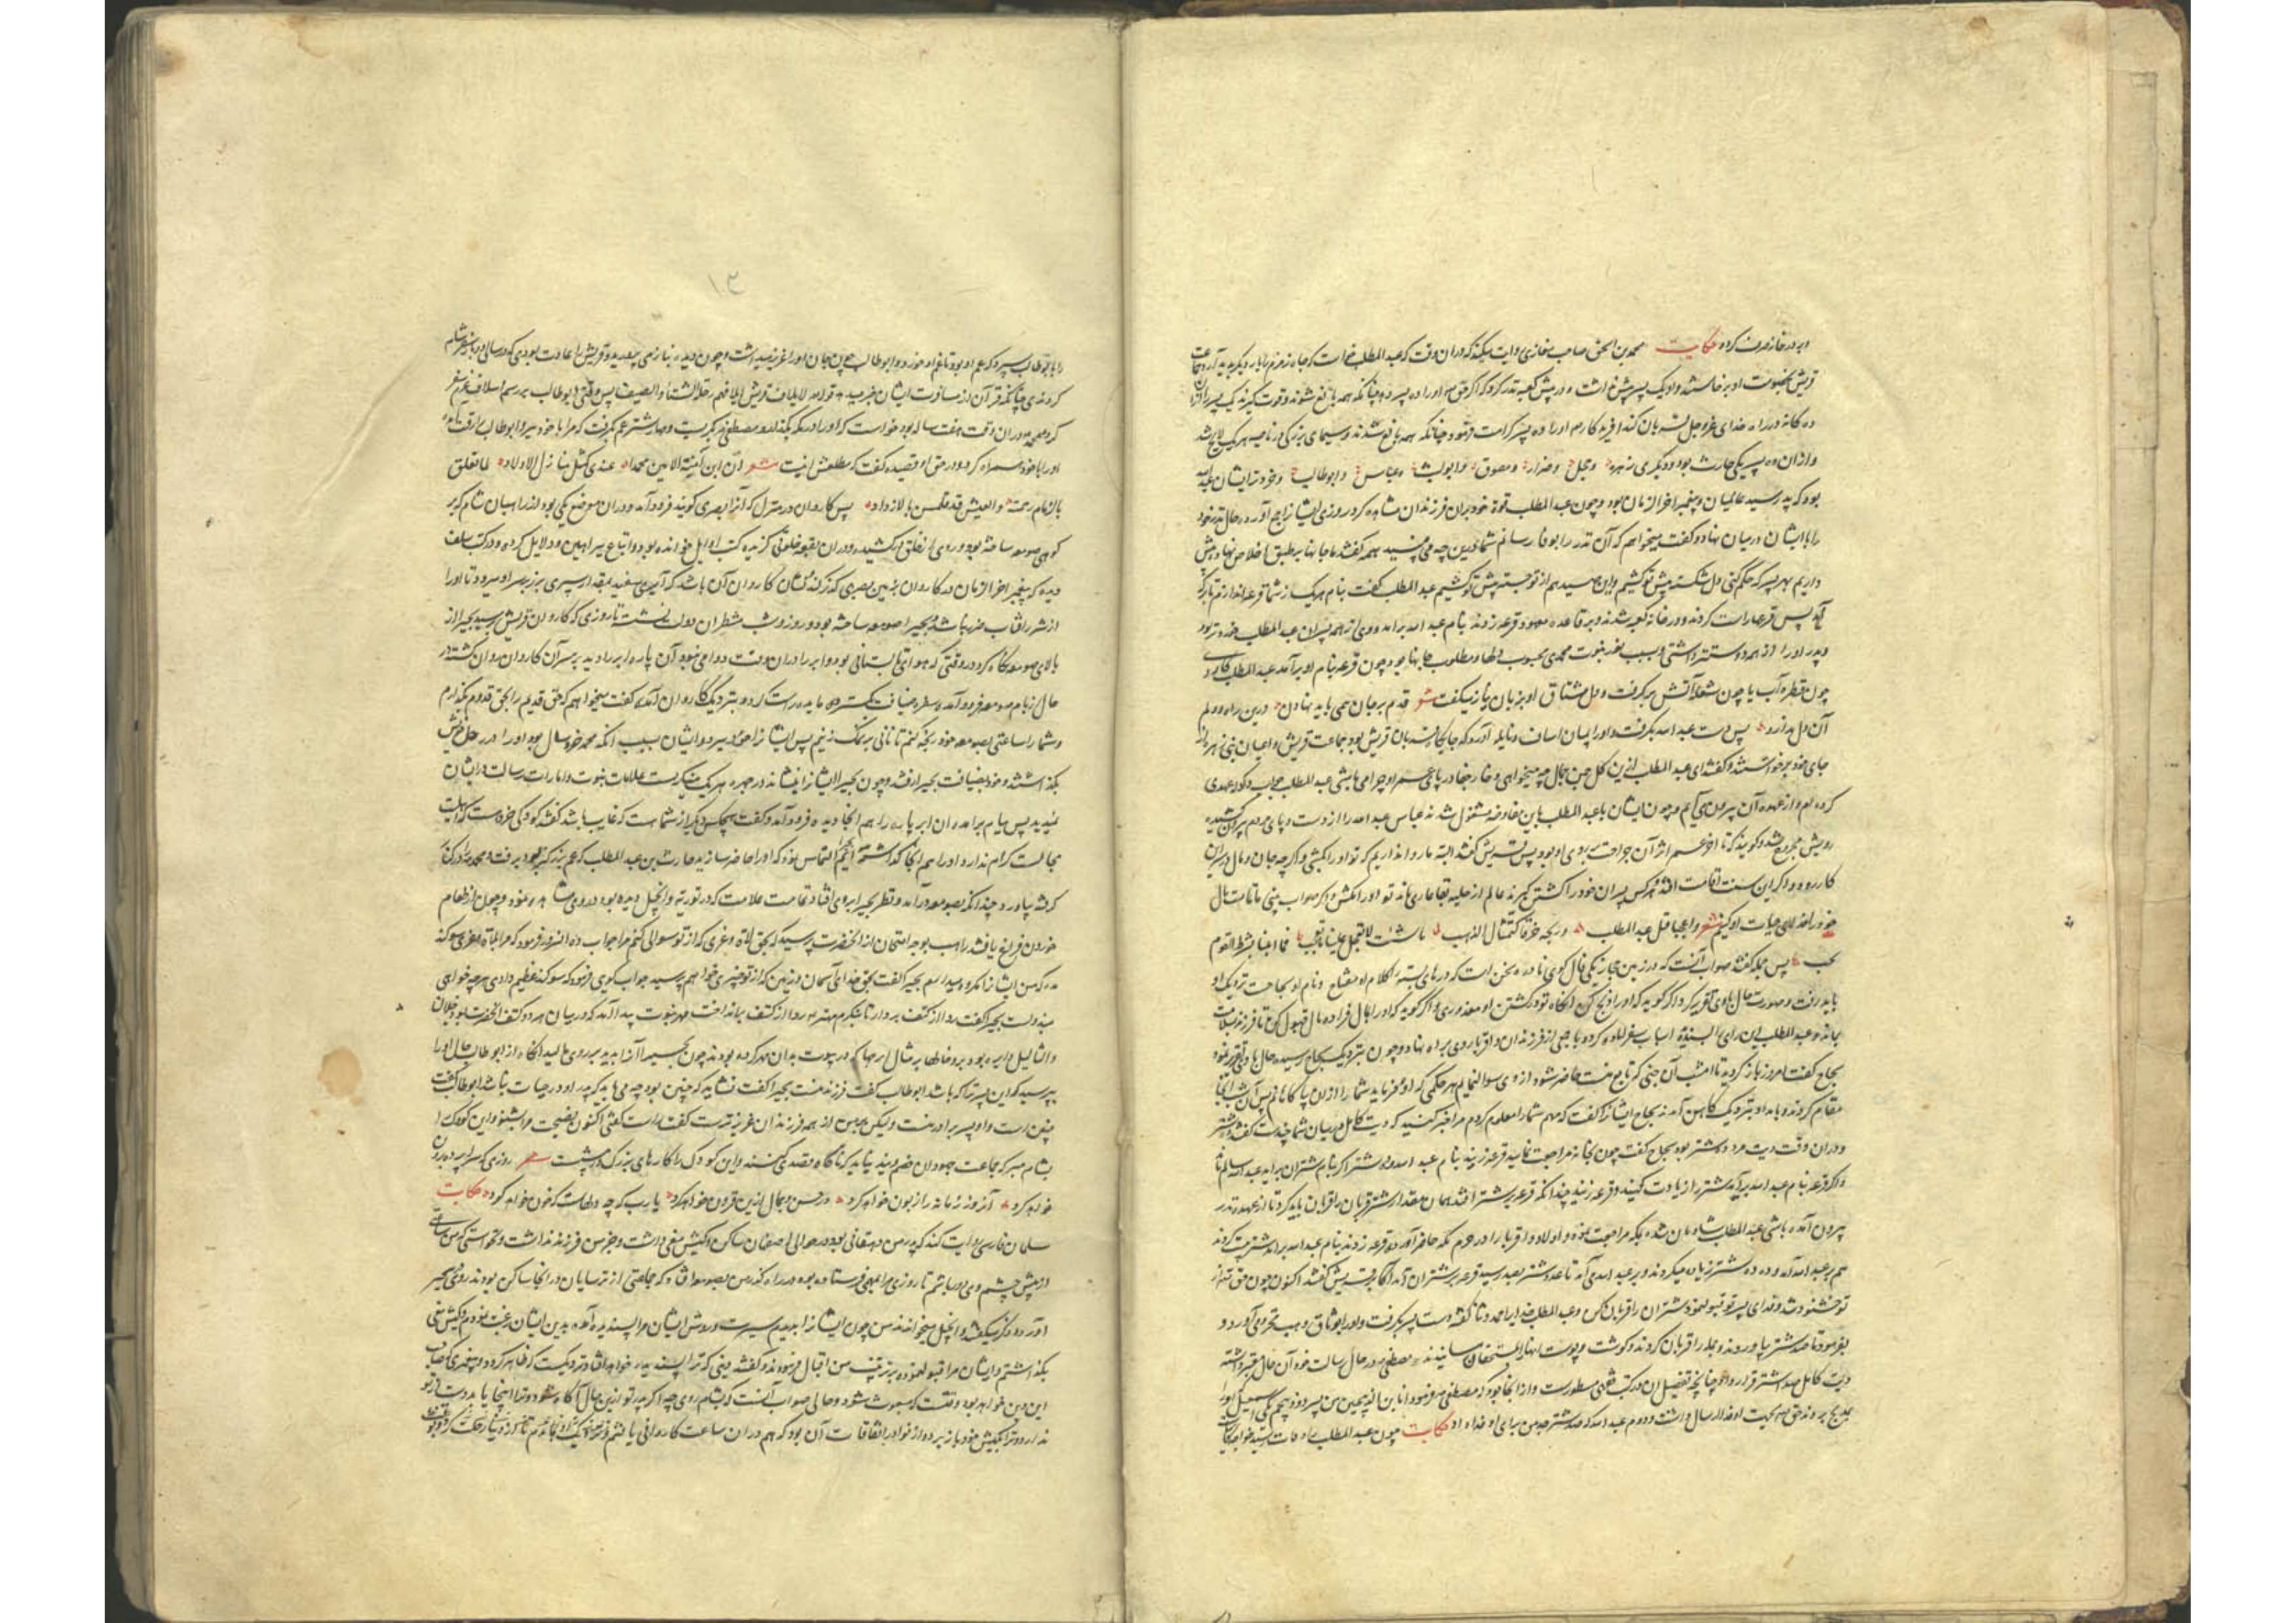 و بر در خانه صرف کرد حکایت محمد بن اسحق صاحب مغازی روایت میکند که در آن وقت که عبد المطلب خواست که چاه زمزم را بار دیگر پدید آرد جماعت
قریش بخصومت او برخاستند و او یک پسر بیش نداشت در پیش کعبه نذر کرد که اگر حق او را ده پسر دهد چنانکه همه بالغ شوند و قوت گیرند یک پسر را از آن
ده گانه در راه خدای عز و جل قربان کند آفریدگار او را ده پسر کرامت فرمود چنانکه همه بالغ شدند و سیمای بزرگی در ناصیه هر یک لایح شد
و از آن ده پسر یکی حارث بود و دیگری زبیر و حجل و ضرار و مقوم و ابولهب و عباس و ابوطالب و خردترین ایشان عبد الله
بود که پدر سید عالمیان و پیغمبر آخر الزمان بود و چون عبد المطلب قوة خود بر آن فرزندان مشاهده کرد روزی ایشانرا جمع آورد و حال نذر خود
را با ایشان در میان نهاد و گفت میخواهم که آن نذر را بوفا رسانم شما درین چه می بینید همه گفتند ما جانها بر طبق اخلاص نهاده پیش
داریم بهر پسر که حکم کنی پیش تو کشیم عبد المطلب گفت بنام هر یک از شما قرعه اندازم تا بر که
آید پس قرعها راست کردند و در خانه کعبه شدند و بر قاعده معهود قرعه زدند بنام عبد الله برآمد و وی از همه پسران عبد المطلب خردتر بود
و پدر او را از همه دوستتر داشتی و بسبب نور نبوت محمدی محبوب دلها و مطلوب جانها بود چون قرعه بنام او برآمد عبد المطلب
چون قطره آب یا چون شعله آتش برگرفت و دل مشتاق او بزبان نیاز میگفت شعر قدم بر جان همی باید نهادن درین راه و دلم
آن دل ندارد پس دست عبد الله بگرفت و او را میان اساف و نایله آورد که جایگاه قربان قریش بود جماعت قریش و اعیان بنی زهره از
جای خود برخاستند و گفتند ای عبد المطلب ازین گل چمن جمال چه میخواهی و خار جفا در پای عمر او چرا می پاشی عبد المطلب جواب داد که عهدی
کرده ام و از عهده آن بیرون می آیم و چون ایشان با عبد المطلب باین مفاوضه مشغول شدند عباس عبد الله را از دست و پای پدر بیرون کشید
رویش مجروح شد و گویند که تا آخر عمر اثر آن جراحت بر روی او بود پس قریش گفتند البته ما روا نداریم که تو او را بکشی و اگر چه جان و مال در سر آن
کار رود و اگر این سنت اقامت افتد و هر کس پسران خود را کشتن گیرند عالم از حلیه بقا عاری ماند تو او را مکش و اگر صواب بینی ما تمامت مال
خود را فدای حیات او کنیم شعر وا عجبا قتل عبد المطلب
پس جمله گفتند صواب آنست که در زمین حجاز یکی فال گوی نادره سخن است که درهای بسته را کلام او مفتاح و نام او سجاح نزدیک او
باید رفت و صورت حال با وی تقریر کرد اگر گوید که او را ذبح کن آنگاه تو در کشتن او معذوری و اگر گوید که او را بمال فدا ده مال قبول کن تا فرزند بسلامت
بماند عبد المطلب این رای پسندیده اسباب سفر آماده کرد و با جمعی از فرزندان و اقربا روی براه نهاد و چون بنزدیک سجاح رسید حال با وی تقریر نمود
سجاح گفت امروز باز گردید تا امشب آن جنی که تابع منست حاضر شود از وی سوال نمایم هر حکمی که او فرماید شما را از آن آگاه کنم پس آن شب آنجا
مقام کردند و بامداد بنزدیک کاهن آمدند سجاح ایشانرا گفت که مهم شما را معلوم کردم مرا خبر کنید که دیت کامل در میان شما چندست گفتند ده شتر
و در آن وقت دیت مرد ده شتر بود سجاح گفت چون بخانه مراجعت نمایید قرعه زنید بنام عبد الله و ده شتر اگر بنام شتران برآید عبد الله سالم ماند
و اگر قرعه بنام عبد الله برآید شتر را زیادت کنید و قرعه زنید چندانکه قرعه بر شتر افتد همان مقدار شتر قربان باید کرد تا از عهده نذر
بیرون آمده باشی عبد المطلب شادمان شده بمکه مراجعت نمود و اولاد و اقربا را در حرم مکه حاضر آورد و قرعه زدند بنام عبد الله برآمد
هم بر عبد الله آمد و ده ده شتر زیادت میکردند و بر عبد الله می آمد تا عدد شتر بصد رسید قرعه بر شتران آمد اکابر قریش گفتند اکنون چون حق تعالی از
تو خشنود شد و فدای پسر تو قبول نمود شتران را قربان کن و عبد المطلب خدایرا حمد و ثنا گفته دست پسر بگرفت و
بفرمود تا صد شتر بیاوردند و جمله را قربان کردند و گوشت و پوست آنها را بمستحقان رسانیدند و مصطفی در حال رسالت خود آن حال مقرر داشته
دیت کامل صد شتر قرار داد چنانچه تفصیل آن در کتب فقهی مسطورست و از آنجا بود که مصطفی فرمود انا ابن الذبیحین من پسر دو ذبیحم یکی اسمعیل که او را
عبد الله که صد شتر پدر من برای او فدا داد حکایت چون عبد المطلب را وفات رسید
را بابوطالب سپرد که عم او بود تا غم او خورد و ابوطالب چون جان او را عزیز میداشت و چون دیده بناز می پرورید و قریش را عادت بودی که در سالی دو بار سفر شام
کردندی چنانکه قرآن از مسافرت ایشان خبر میدهد قوله لایلاف قریش ایلافهم رحلة الشتاء و الصیف پس وقتی ابوطالب بر رسم اسلاف عزم سفر
کرد محمد در آن وقت هفت ساله بود خواست که او را در مکه بگذارد مصطفی بگریست و مهار شتر عم بگرفت که مرا با خود ببر و ابوطالب را رقت آمد
او را با خود همراه کرد و در حق او قصیده گفت که مطلعش اینست شعر ان ابن آمنة الامین محمدا عندی کمثل منازل الاولاد لما تعلق
بالزمام رحمته و العیس قد قلصن بالازواد پس کاروان در منزل که آنرا بصری گویند فرود آمد و در آن موضع یکی بود از راهبان شام که بر
کوهی صومعه ساخته بود و روی از خلق درکشیده و در آن بقعه خلوتی گزیده کتب اوایل خوانده بود و اتباع براهین و دلایل کرده و در کتب سلف
دیده که پیغمبر آخر الزمان در کاروان بزمین بصری گذر کند نشان کاروان آن باشد که ابری سفید بمقدار سپری بر زبر سر او میرود تا او را
از شرر آفتاب ضرر نباشد و بحیرا صومعه ساخته بود و روز و شب منتظر آن دولت نشسته تا روزی که کاروان قریش رسید بحیرا از
بالای صومعه نگاه کرد در وقتی که هوای تابستانی بود و ابر را در آن وقت دوامی نبود آن پاره ابر را دید بر سر آن کاروان روان گشته در
حال از بام صومعه فرود آمده سفره ضیافت بگسترد و مایده راست کرده بنزدیک کاروان آمد و گفت میخواهم که حق قدیم را بحق قدوم بگذارم
و شما را ساعتی بصومعه خود رنجه کنم تا نانی بر نمک زنیم پس ایشانرا بصومعه برد و ایشان بسبب آنکه محمد خرد سال بود او را در رحل خویش
بگذاشتند و خود بضیافت بحیرا رفتند و چون بحیرا ایشانرا بنشاند در چهره هر یک مینگریست علامات نبوت و امارات رسالت در ایشان
ندید پس ببام برآمد آن ابر پاره را هم آنجا دید فرود آمد و گفت هیچکس دیگر از شما هست که غایب باشد گفتند کودکی خردست که اهلیت
مجالست کرام ندارد او را هم آنجا گذاشته ایم التماس نمود که او را حاضر سازید حارث بن عبد المطلب که عم بزرگتر بود برفت و محمد را در کنار
گرفته بیاورد چندانکه بصومعه درآمد و نظر بحیرا بر وی افتاد تمامت علامت که در توریة و انجیل دیده بود در وی مشاهده نمود و چون از طعام
خوردن فارغ یافتند راهب بوجه امتحان از آنحضرت پرسید که بحق لات و عزی که از تو سوالی کنم مرا جواب ده آنسرور فرمود که مرا بلات و عزی سوگند
مده که من ایشانرا مکروه میدارم بحیرا گفت بحق خدای آسمان و زمین که از تو چیزی خواهم پرسید جواب گوی فرمود که سوگند عظیم دادی هر چه خواهی
بحیرا گفت ردا از کتف بردار تا بنگرم مهتر ردا از کتف بینداخت مهر نبوت پیدا آمد که در میان هر دو کتف آنحضرت بود
بحیرا آنرا بدید بر روی مالید آنگاه از ابوطالب حال او را
بپرسید که این پسر ترا که باشد ابوطالب گفت فرزند منست بحیرا گفت نشاید که چنین بود چه می باید که پدر او در حیات نباشد ابوطالب گفت
چنین است و او پسر برادر منست ولیکن پیش من از همه فرزندان عزیزترست گفت راست گفتی اکنون نصیحت مرا بشنو و این کودک را
بشام مبر که جماعت جهودان خصم ویند نباید که ناگاه قصدی کنند و این کودک را کارهای بزرگ در پیشست شعر روزی که سر از پرده برون
خواهد کرد آنروز زمانه را زبون خواهد کرد در حسن و جمال ازین فزون خواهد کرد یا رب که چه دلهاست که خون خواهد کرد حکایت
سلمان فارسی روایت کند که پدر من دهقانی بود در حوالی اصفهان ساکن و کیش مغی داشت و جز من فرزند نداشت و نخواستی که من ساعتی
از پیش چشم وی دور باشم تا روزی مرا بمهمی فرستاده بود در راه گذر من بصومعه افتاد که جماعتی از ترسایان در آنجا ساکن بودند روی
آورده ذکر میگفتند و انجیل میخواندند من چون ایشانرا بدیدم سیرت و روش ایشان مرا پسندیده آمده بدین ایشان رغبت نمودم و کیش مغی
بگذاشتم و ایشان مرا قبول نموده بر تربیت من اقبال فرمودند و گفتند دینی که ترا پسندیده خواهد افتاد نزدیکست که ظاهر گردد و پیغمبری که صاحب
این دین خواهد بود وقتست که مبعوث شود و حالی صواب آنست که بشام روی چه اگر پدر تو ازین حال آگاه شود و ترا اینجا یابد دست از تو
ندارد و ترا بکیش خود باز برد و از نوادر اتفاقات آن بود که هم در آن ساعت کاروانی یافتم